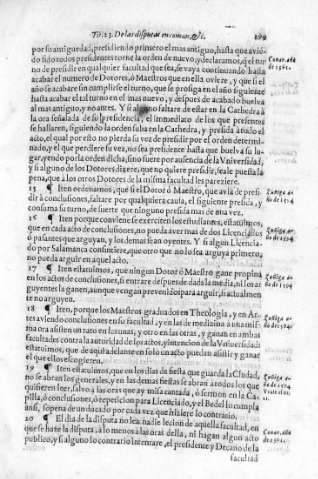 Tit. 23. De las disputas en comun, &c. 109
por su antiguedad, presidiendo primero el mas antiguo, hasta que avido
sido todos presidentes torne la orden de nuevo, y declaramos, q̃ el turno
no de presidir en qualquier facultad que sea, se vaya continuando hasta
acabar el numero de Dotores, ò Maestros que en ella oviere, y que si el
año se acabare sin cumplirse el turno, que se prosiga en el año siguiente
hasta acabar el tal turno en el mas nuevo, y despues de acabado buelva
al mas antiguo, y no antes. Y si alguno faltare de estar en la Cathedra à
la ora señalada de su presidencia, el immediato de los que presentes
se hallaren, siguiendo la orden suba en la Cathedra, y presida à todo el
acto, el qual por esto no pierda su voz de presidir por el orden determinado,
y el que perdiere su vez, no sea presidente hasta que buelva su lugar,
yendo por la orden dicha, sino fuere por ausencia de la Vniversidad,
y si alguno de los Dotores dixere, que no quiere presidir, sea le puesta la
pena, que à los otros Dotores de la misma facultad les pareziere.
15 ¶ Iten ordenamos, que si el Dotor ò Maestro, que avia de presidir
à conclusiones, faltare por qualquiera causa, el siguiente presida, y
consuma su turno, de suerte que ninguno presida mas de una vez.
16 ¶ Iten porque conviene se exerciten los estudiantes, estatuimos,
que en cada acto de conclusiones, no pueda aver mas de dos Licenciados
ò pasantes que arguyan, y los demas sean oyentes. Y si algun Licenciado
por Salamanca consintiere, que otro que no lo sea arguya primero,
no pueda arguir en aquel acto.
17 ¶ Iten estatuimos, que ningun Dotor ò Maestro gane propina
en los actos de conclusiones, si entrare despues de dada la media, ni los arguyentes
la ganen, aunque vengan prevenidos para arguir, si actualmente
no arguyen.
18 ¶ Iten, porque los Maestros graduados en Theologia, y en Artes
aviendo conclusiones en su facultad, y en la de medicina a una misma
ora assisten un rato en las unas, y otro en las otras, y ganan en ambas
facultades contra la autoridad de los actos, y intencion de la Vniversidad:
estatuimos, que de aqui adelante en solo un acto puedan asistir y ganar
el que ellos escogieren.
19 ¶ Iten estatuimos, que en los dias de fiesta que guarda la Ciudad,
no se abran los generales, y en las demas fiestas se abran a todos los que
quisieren leer, salvo a las oras que ay missa cantada, ò sermon en la Capilla,
ò conclusiones, ò repeticion para Licenciado, y el Bedel lo cumpla
ansi, so pena de un ducado por cada vez que hiziere lo contrario.
20 ¶ El dia de la disputa no lea nadie lecion de aquella facultad, en
que se haze la disputa, à lo menos à las oras della, ni hagan algun acto
publico, y si alguno lo contrario intentare, el presidente y Decano de la
facultad